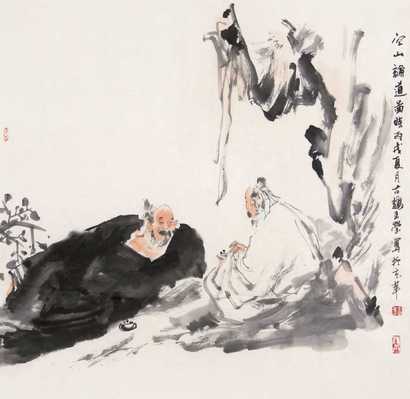 空山論道圖時丙戌夏月古魏王學寫於京華